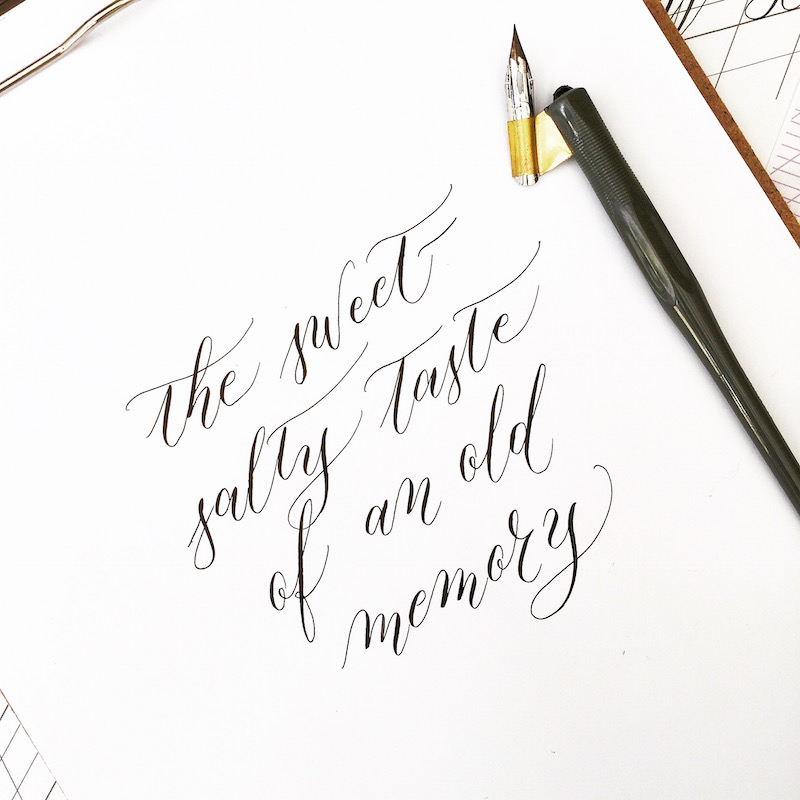 the sweet
salty taste
of an old
memory